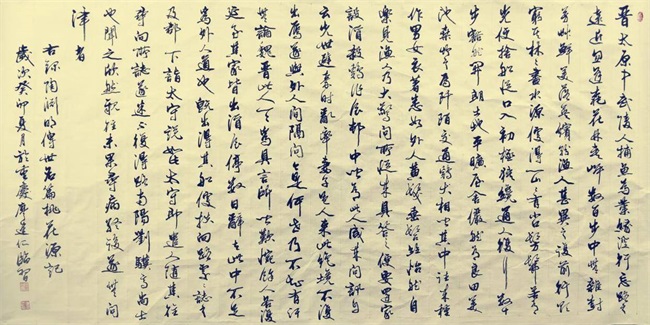 晉太原中武陵人捕魚為業緣溪行忘路之
遠近忽逢桃花林夾岸數百步中無雜樹
芳草鮮美落英繽紛漁人甚異之復前行欲
窮其林林盡水源便得一山山有小口髣髴若有
光便捨船從口入初極狹纔通人復行數十
步豁然開朗土地平曠屋舍儼然有良田美
池桑竹之屬阡陌交通雞犬相聞其中往來種
作男女衣著悉如外人黃髮垂髫並怡然自
樂見漁人乃大驚問所從來具答之便要還家
設酒殺雞作食村中聞有此人咸來問訊自
云先世避秦時亂率妻子邑人來此絕境不復
出焉遂與外人間隔問今是何世乃不知有漢
無論魏晉此人一一為具言所聞皆歎惋餘人各復
延至其家皆出酒食停數日辭去此中不足
為外人道也既出得其船便扶向路處處誌之
及郡下詣太守說如此太守即遣人隨其往
尋向所誌遂迷不復得路南陽劉子驥高尚士
也聞之欣然規往未果尋病終後遂無問
津者
右錄陶淵明傳世名篇桃花源記
歲次癸卯夏月於重慶建仁臨習